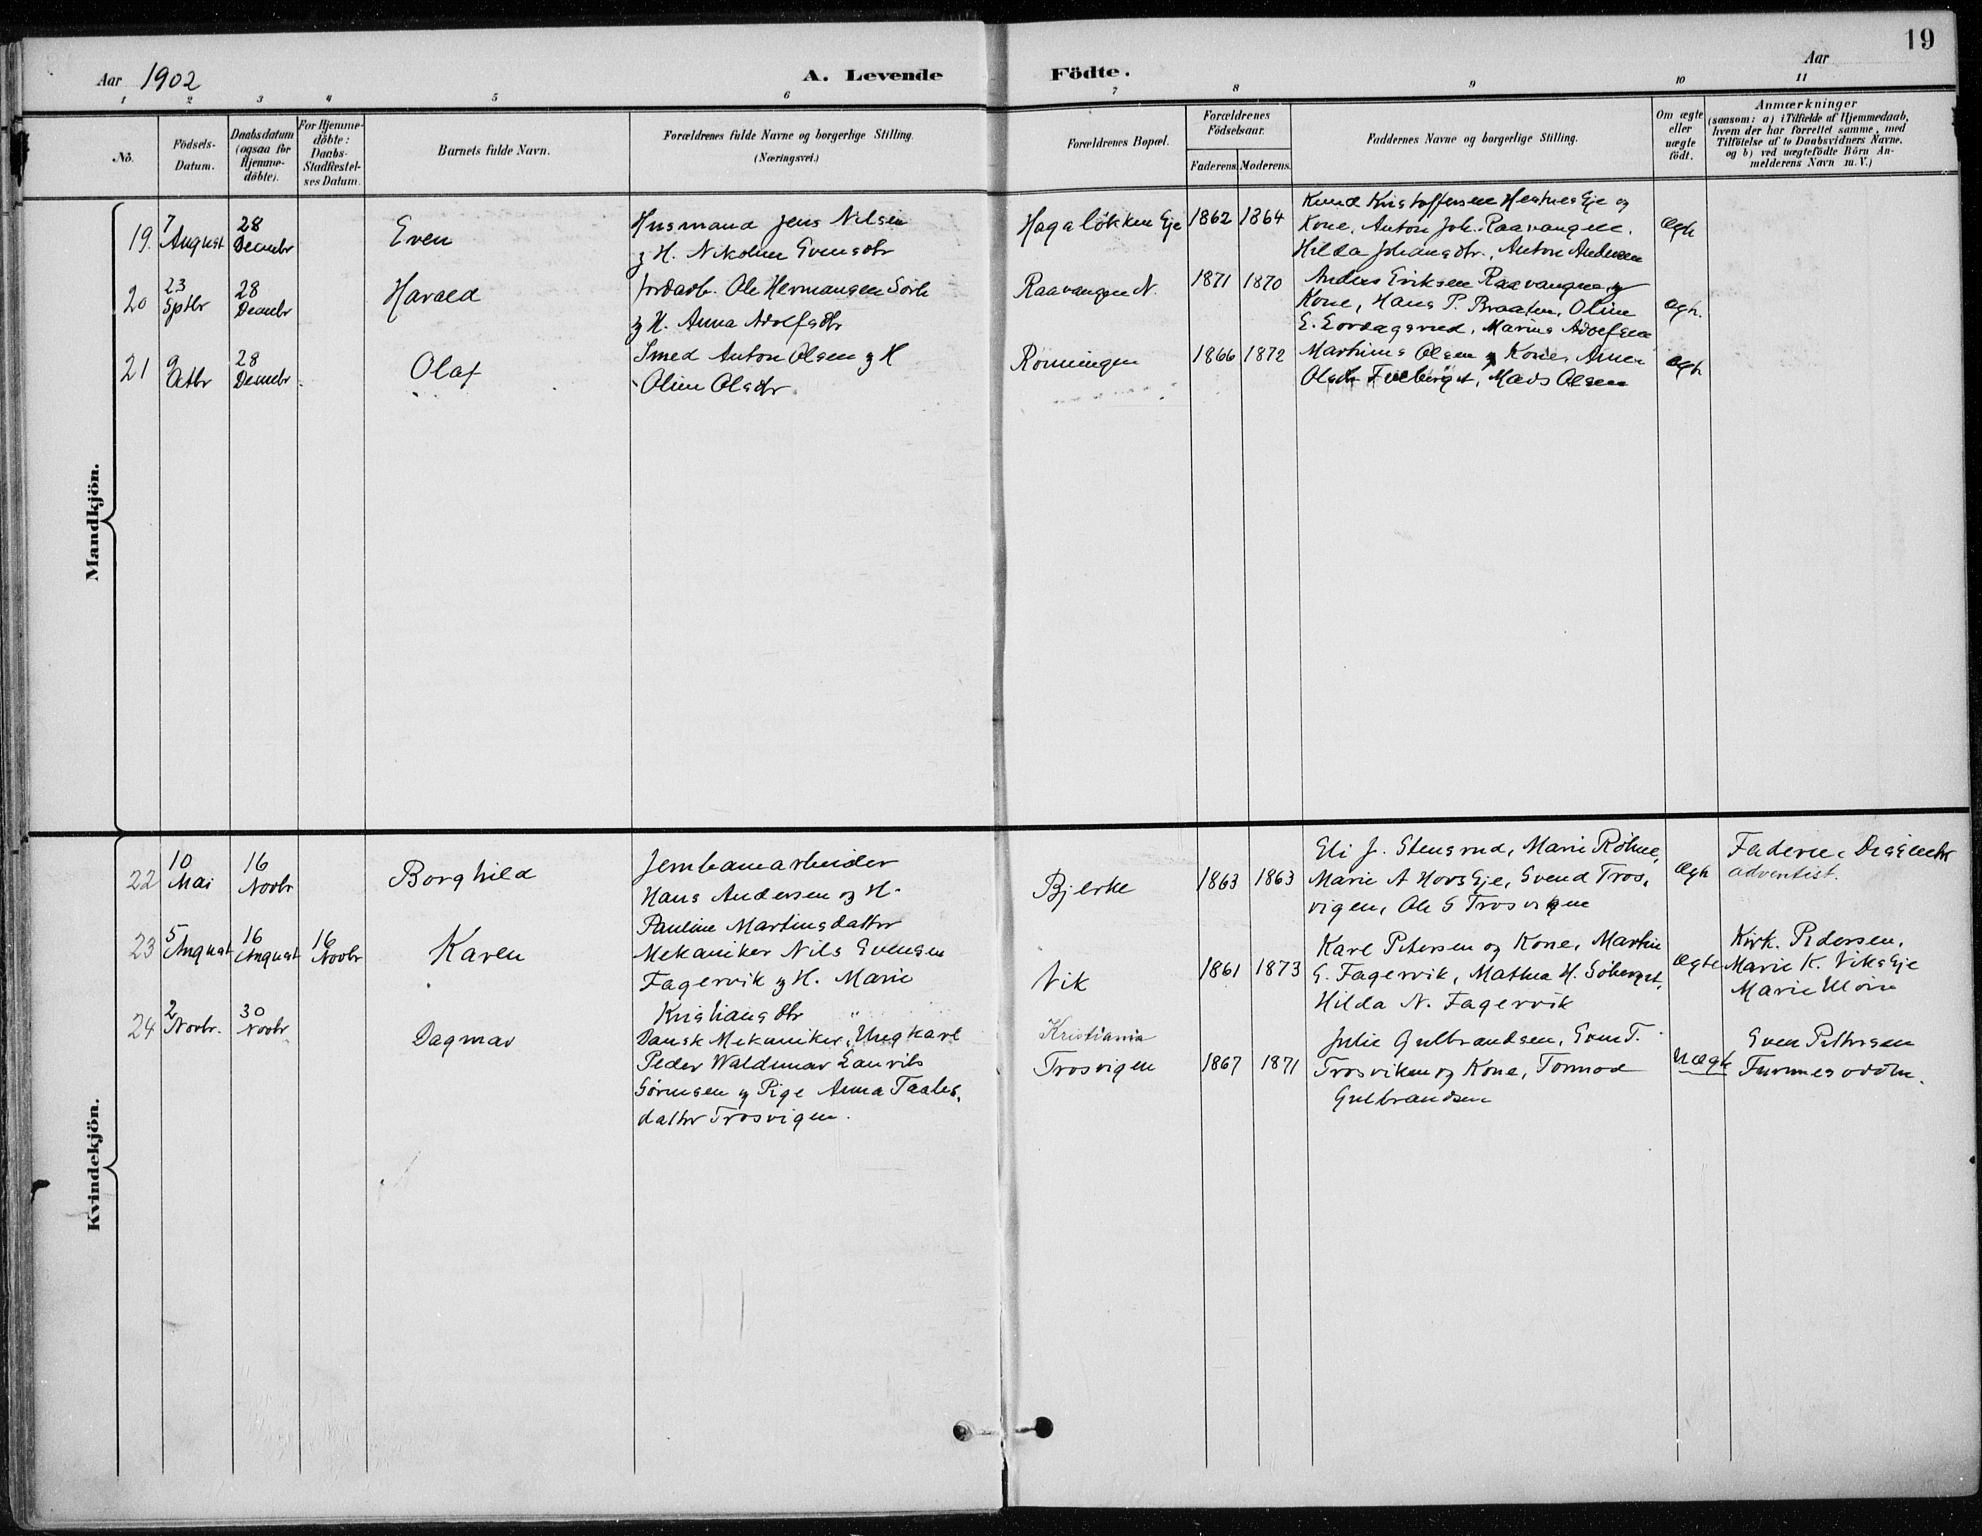 19
Aar 1902 A. Levende Födte. Aar
1 2 3 4 5 6 7 8 9 10 11
No.
Födsels-
Datum.
Daabsdatum
(ogsaa for
Hjemme-
döbte).
For Hjemme-
döbte:
Daabs-
Stadfæstel-
ses Datum.
Barnets fulde Navn.
Forældrenes fulde Navne og borgerlige Stilling.
(Næringsvei.)
Forældrenes Bopæl.
Forældrenes
Födselsaar.
Faderens. Moderens.
Faddernes Navne og borgerlige Stilling.
Om ægte
eller
uægte
födt.
Anmærkninger
(saasom: a) i Tilfælde af Hjemmedaab,
hvem der har forrettet samme, med
Tilföielse af to Daabsvidners Navne.
og b) ved uægtefödte Börn An-
melderens Navn m. V.)
Mandkjön.
19. 7 August 28 Decmbr Even
Husmand Jens Nilsen
og H. Nikoline Evensdtr
Hagaløkken Eje 1862 1864
Knud Kristoffersen Hestnes Eje og
Kone, Anton Joh. Raavangen,
Hilda Johansdtr., Anton Andersen
ægte
20 23 Sptbr 28 Decmbr Harald
Jordarb. Ole Hermansen Sørli
og H. Anna Adolfsdtr
Raavangen N. 1871 1870
Anders Eriksen Raavangen og
Kone, Hans P. Braaten, Oline
E. Lordagsrud, Marius Adolfsen
ægte.
21 9 Octbr 28 Decmbr Olaf
Smed Anton Olsen og H
Oline Olsdtr.
Rønningen 1866 1872
Martinus Olsen og Kone, Anne
Olsdtr Fuleberget, Mads Olsen
ægte
Kvindekjön.
22 10 Mai 16 Novbr Borghild
Jernbanearbeider
Hans Andersen og H.
Pauline Martinsdatter
Bjerke 1863 1863
Eli J. Stensrud, Marie Røhne,
Marie A Hovs Eje, Svend Tros-
vigen, Ole S Trosvigen
Ægte
Faderen Dissenter
adventist.
23 5 August 16 August 16 Novbr Karen
Mekaniker Nils Evensen
Fagervik og H. Marie
Kristiansdtr
Vik 1861 1873
Karl Petersen og Kone, Martin
E. Fagervik, Mathea H. Søberget,
Hilda N. Fagervik
Ægte
Kirk. Pedersen,
Marie K. Viks Eje
Marie Moen
24 2 Novbr. 30 Novbr Dagmar
Dansk Mekaniker, Ungkarl
Peder Waldemar Lauritz
Sørensen og Pige Anna Taales-
datter Trosvigen.
Kristiania
Trosvigen 1867 1871
Julie Gulbrandsen, Even T.
Trosviken og Kone, Tormod
Gulbrandsen
Uægte
Even Pettersen
Furnesodden.